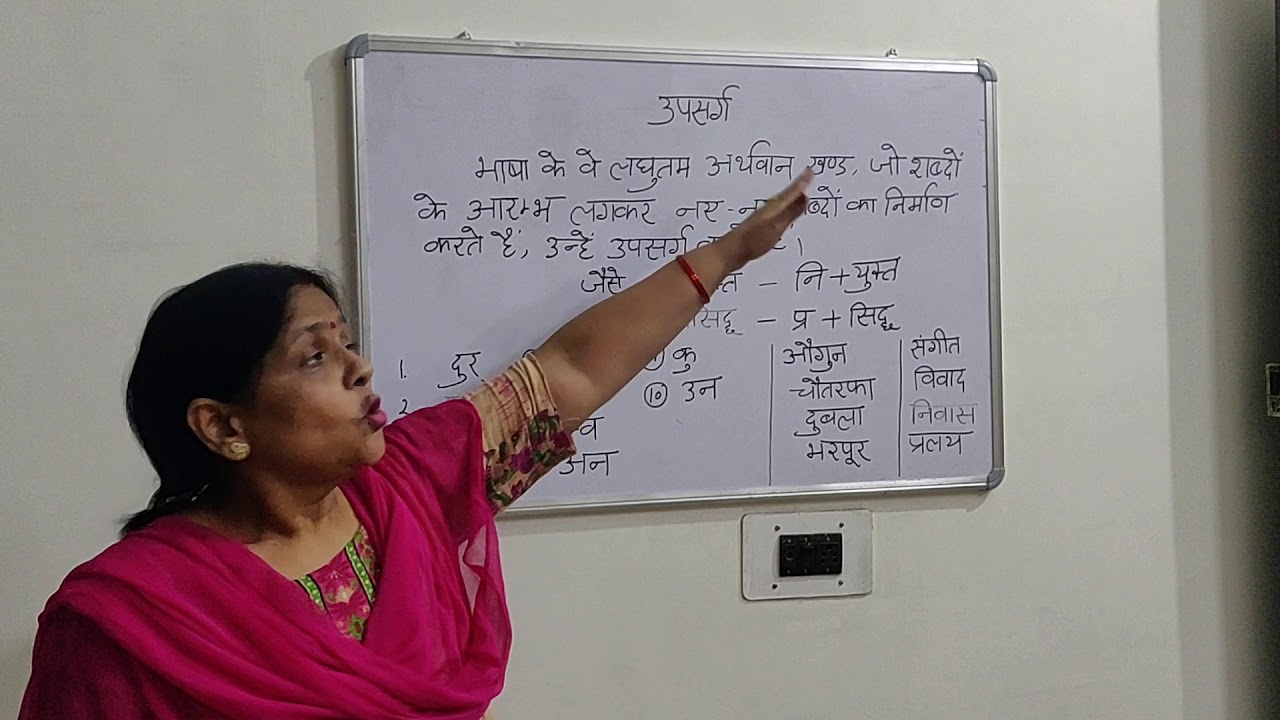 उपसर्ग
भाषा के वे लघुतम अर्थवान खण्ड, जो शब्दों
के आरम्भ लगकर नए-नए शब्दों का निर्माण
करते हैं, उन्हें उपसर्ग
जैसे – नि + युक्त
– प्र + सिद्ध
1. दुर कु
2. ⑩ उन
अन
औगुन
चौतरफा
दुबला
भरपूर
संगीत
विवाद
निवास
प्रलय